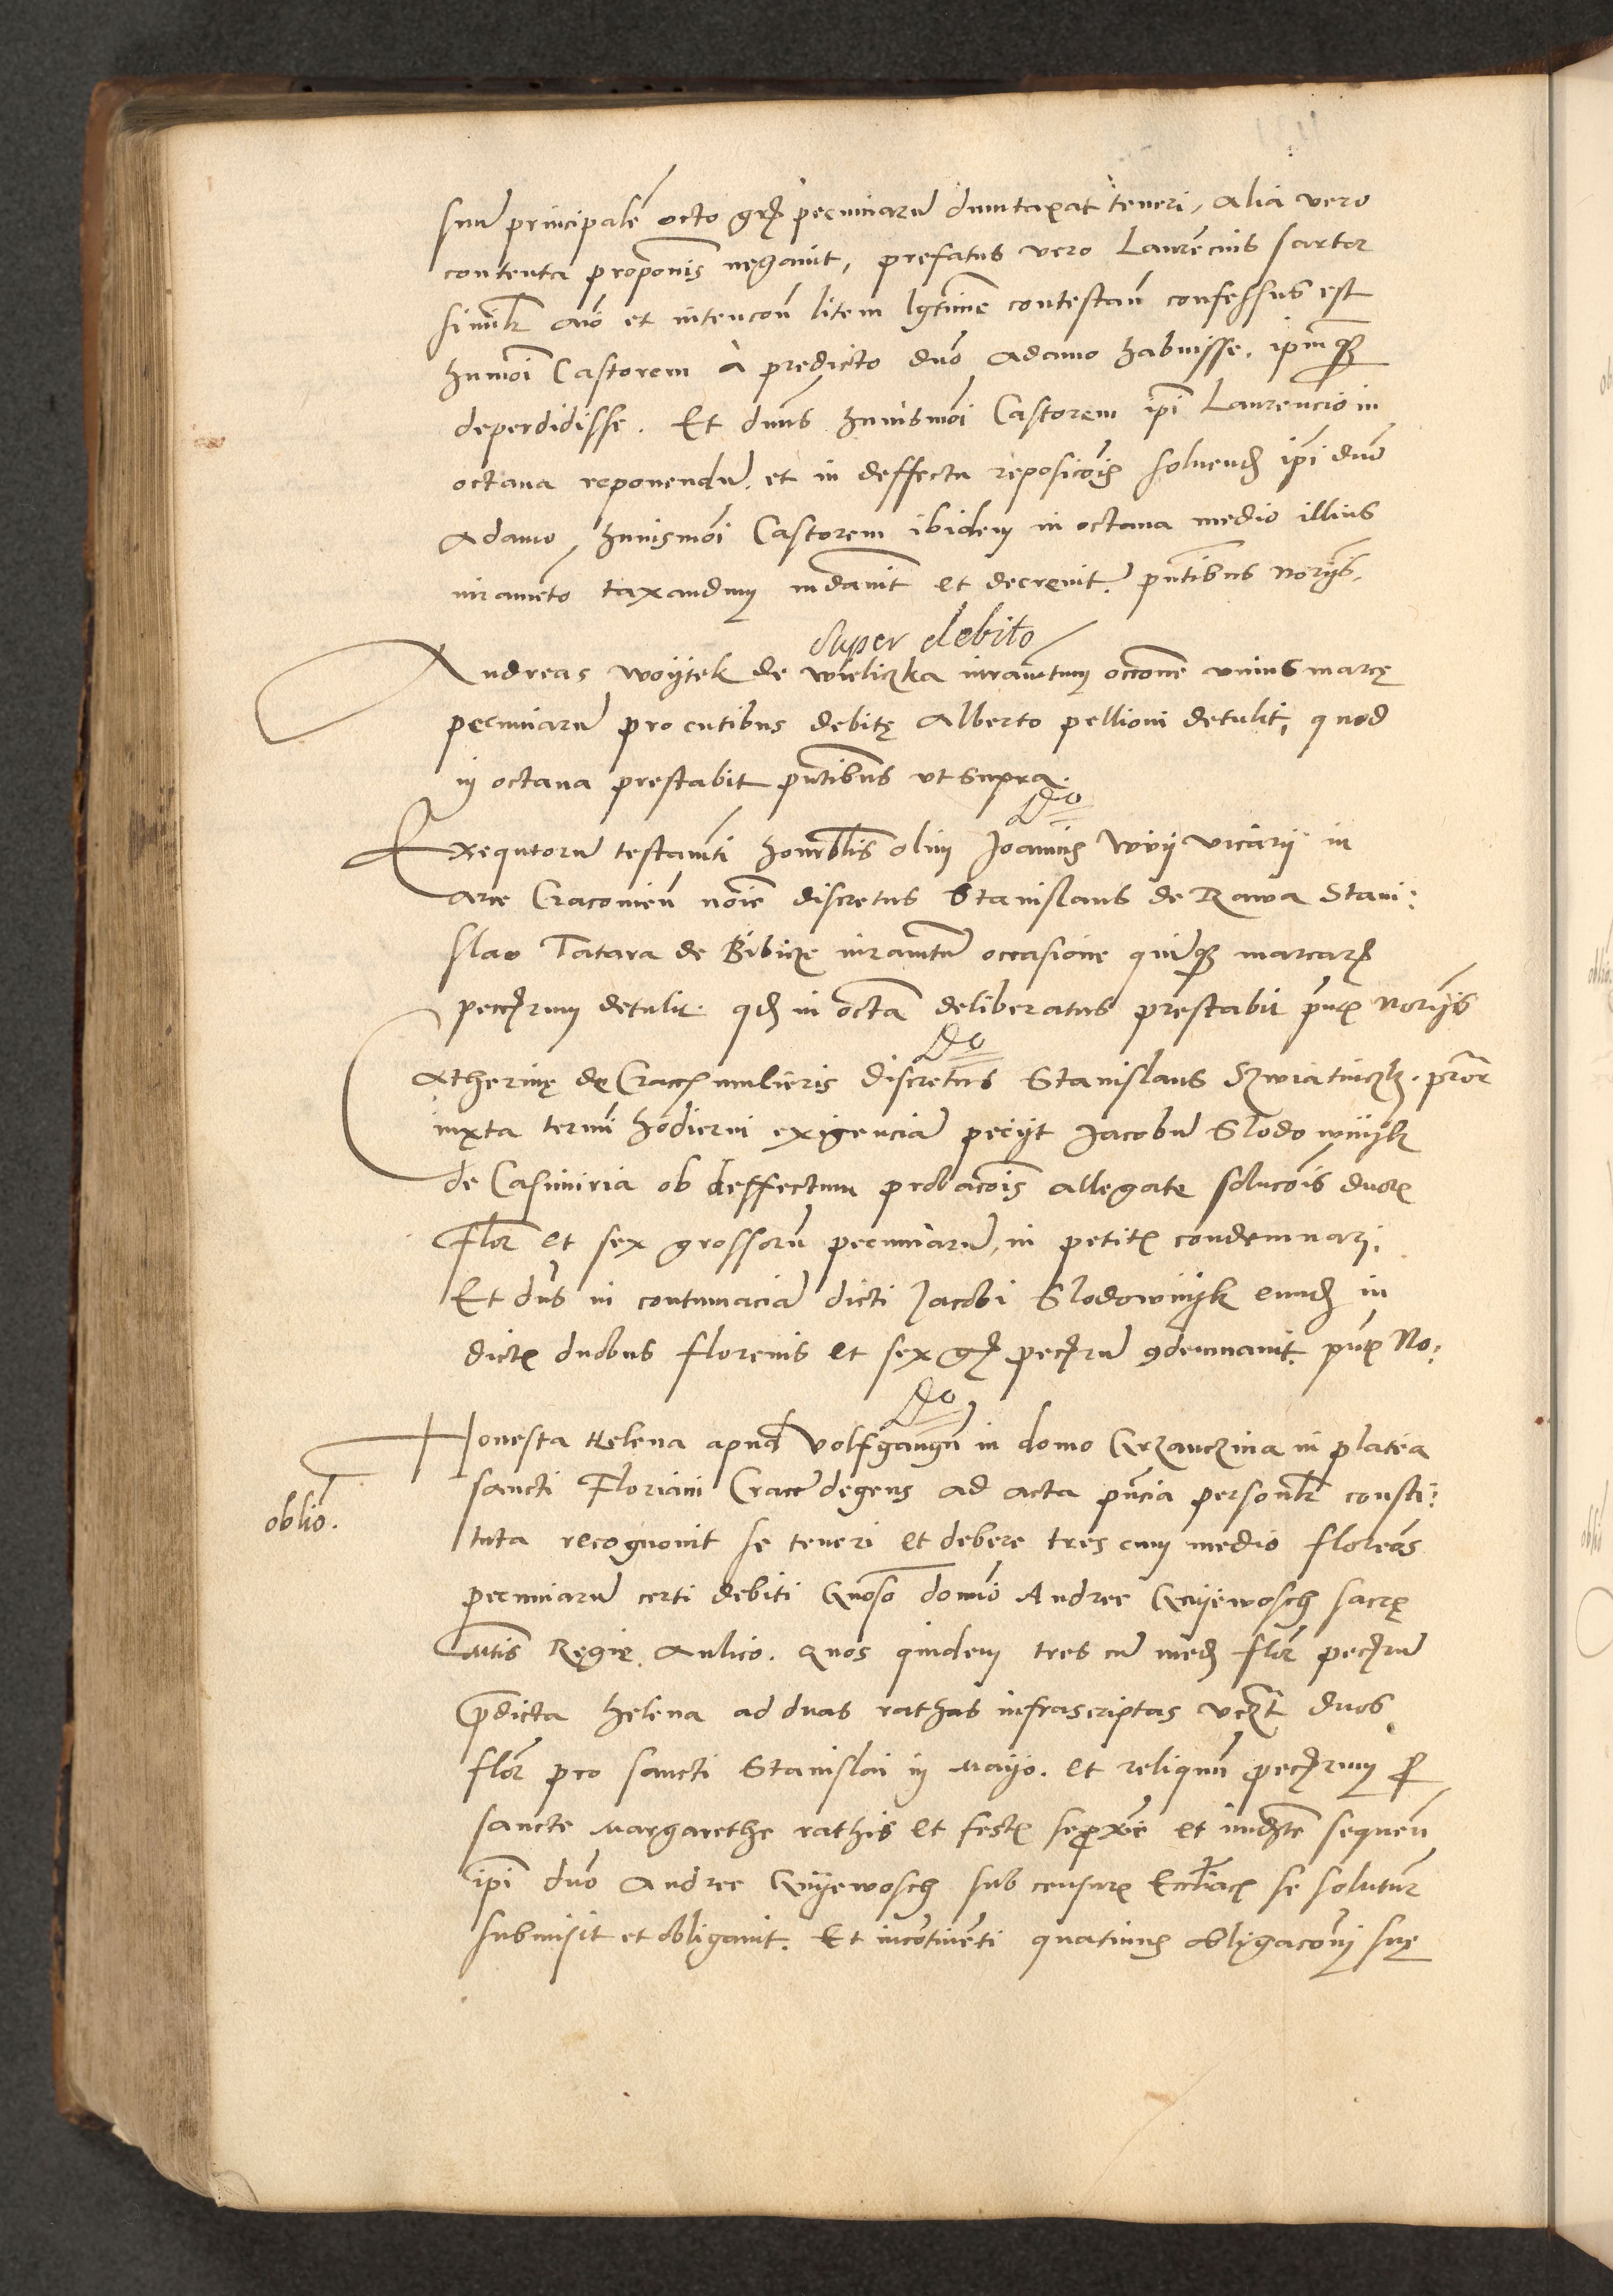 suu principale octo gros pecuniaru dumtaxat teneri, alia vero
contenta propronis negavit, prefatus vero Laurencius sartor
similr aio et intencon litem lgtime contestan confessus est
humoi Castorem a predicto dno Adamo habuisse, ipmq
deperdidisse. Et dnus huiusmoi Castorem ipi Laurencio in
octava reponendu, et in deffectu reposicois solvend ipi dno
Adamo, huiusmoi Castorem ibidem in octava medio illius
iurameto taxandum mdavit et decrevit. pntibus Norijs.
Super debito
Andreas Woijtek de Wieliczka iuramtum occone unius marcę
pecuniaru pro cutibus debitę Alberto pellioni detulit, quod
in octava prestabit pntibus ut supra.
Do
Exequtoru testamti honrblis olim Joannis vicarij in
arce Cracovien noie discretus Stanislaus de Rawa Stani:
slao Tatara de Bibicze iuramtu occasione quinq marcar
peccrum detulit. qd in octa deliberatus prestabit pnt Norijs
Do
Catherinę de Cracch mulieris discretus Stanislaus Szwiatniczk. pror
iuxta termi hodierni exigencia peciit Jacobu Slodownijk
de Casimiria ob deffectum probacois allegate solucois duor
Flor et sex grossoru pecuniaru, in petit condemnari.
Et dns in contumacia dicti Jacobi Slodownijk eund in
dict duobus florenis et sex gr peccru 9demnavit. pnt No:
Do
Honesta Helena apud Volfgangu in domo Krzanczina in platea
sancti Floriani Cracce degens ad acta pncia personlr consti:
oblio.
tuta recognovit se teneri et debere tres cum medio florenos
pecuniaru certi debiti Gnoso domio Andree Knijewosch sacrę
Mtis Regię Aulico. Quos quidem tres cu med flor peccru
Predicta Helena ad duas rathas infrascriptas vczt duos
flor pro sancti Stanislai in Maijo. et reliquu peccrum p
sancte Margarethe rathis et fest se prox et imdte sequen
ipi dno Andree Knijewosch sub censur Ecclliac se solutur
submisit et obligavit. Et incotinenti quatinus obligaconi suę